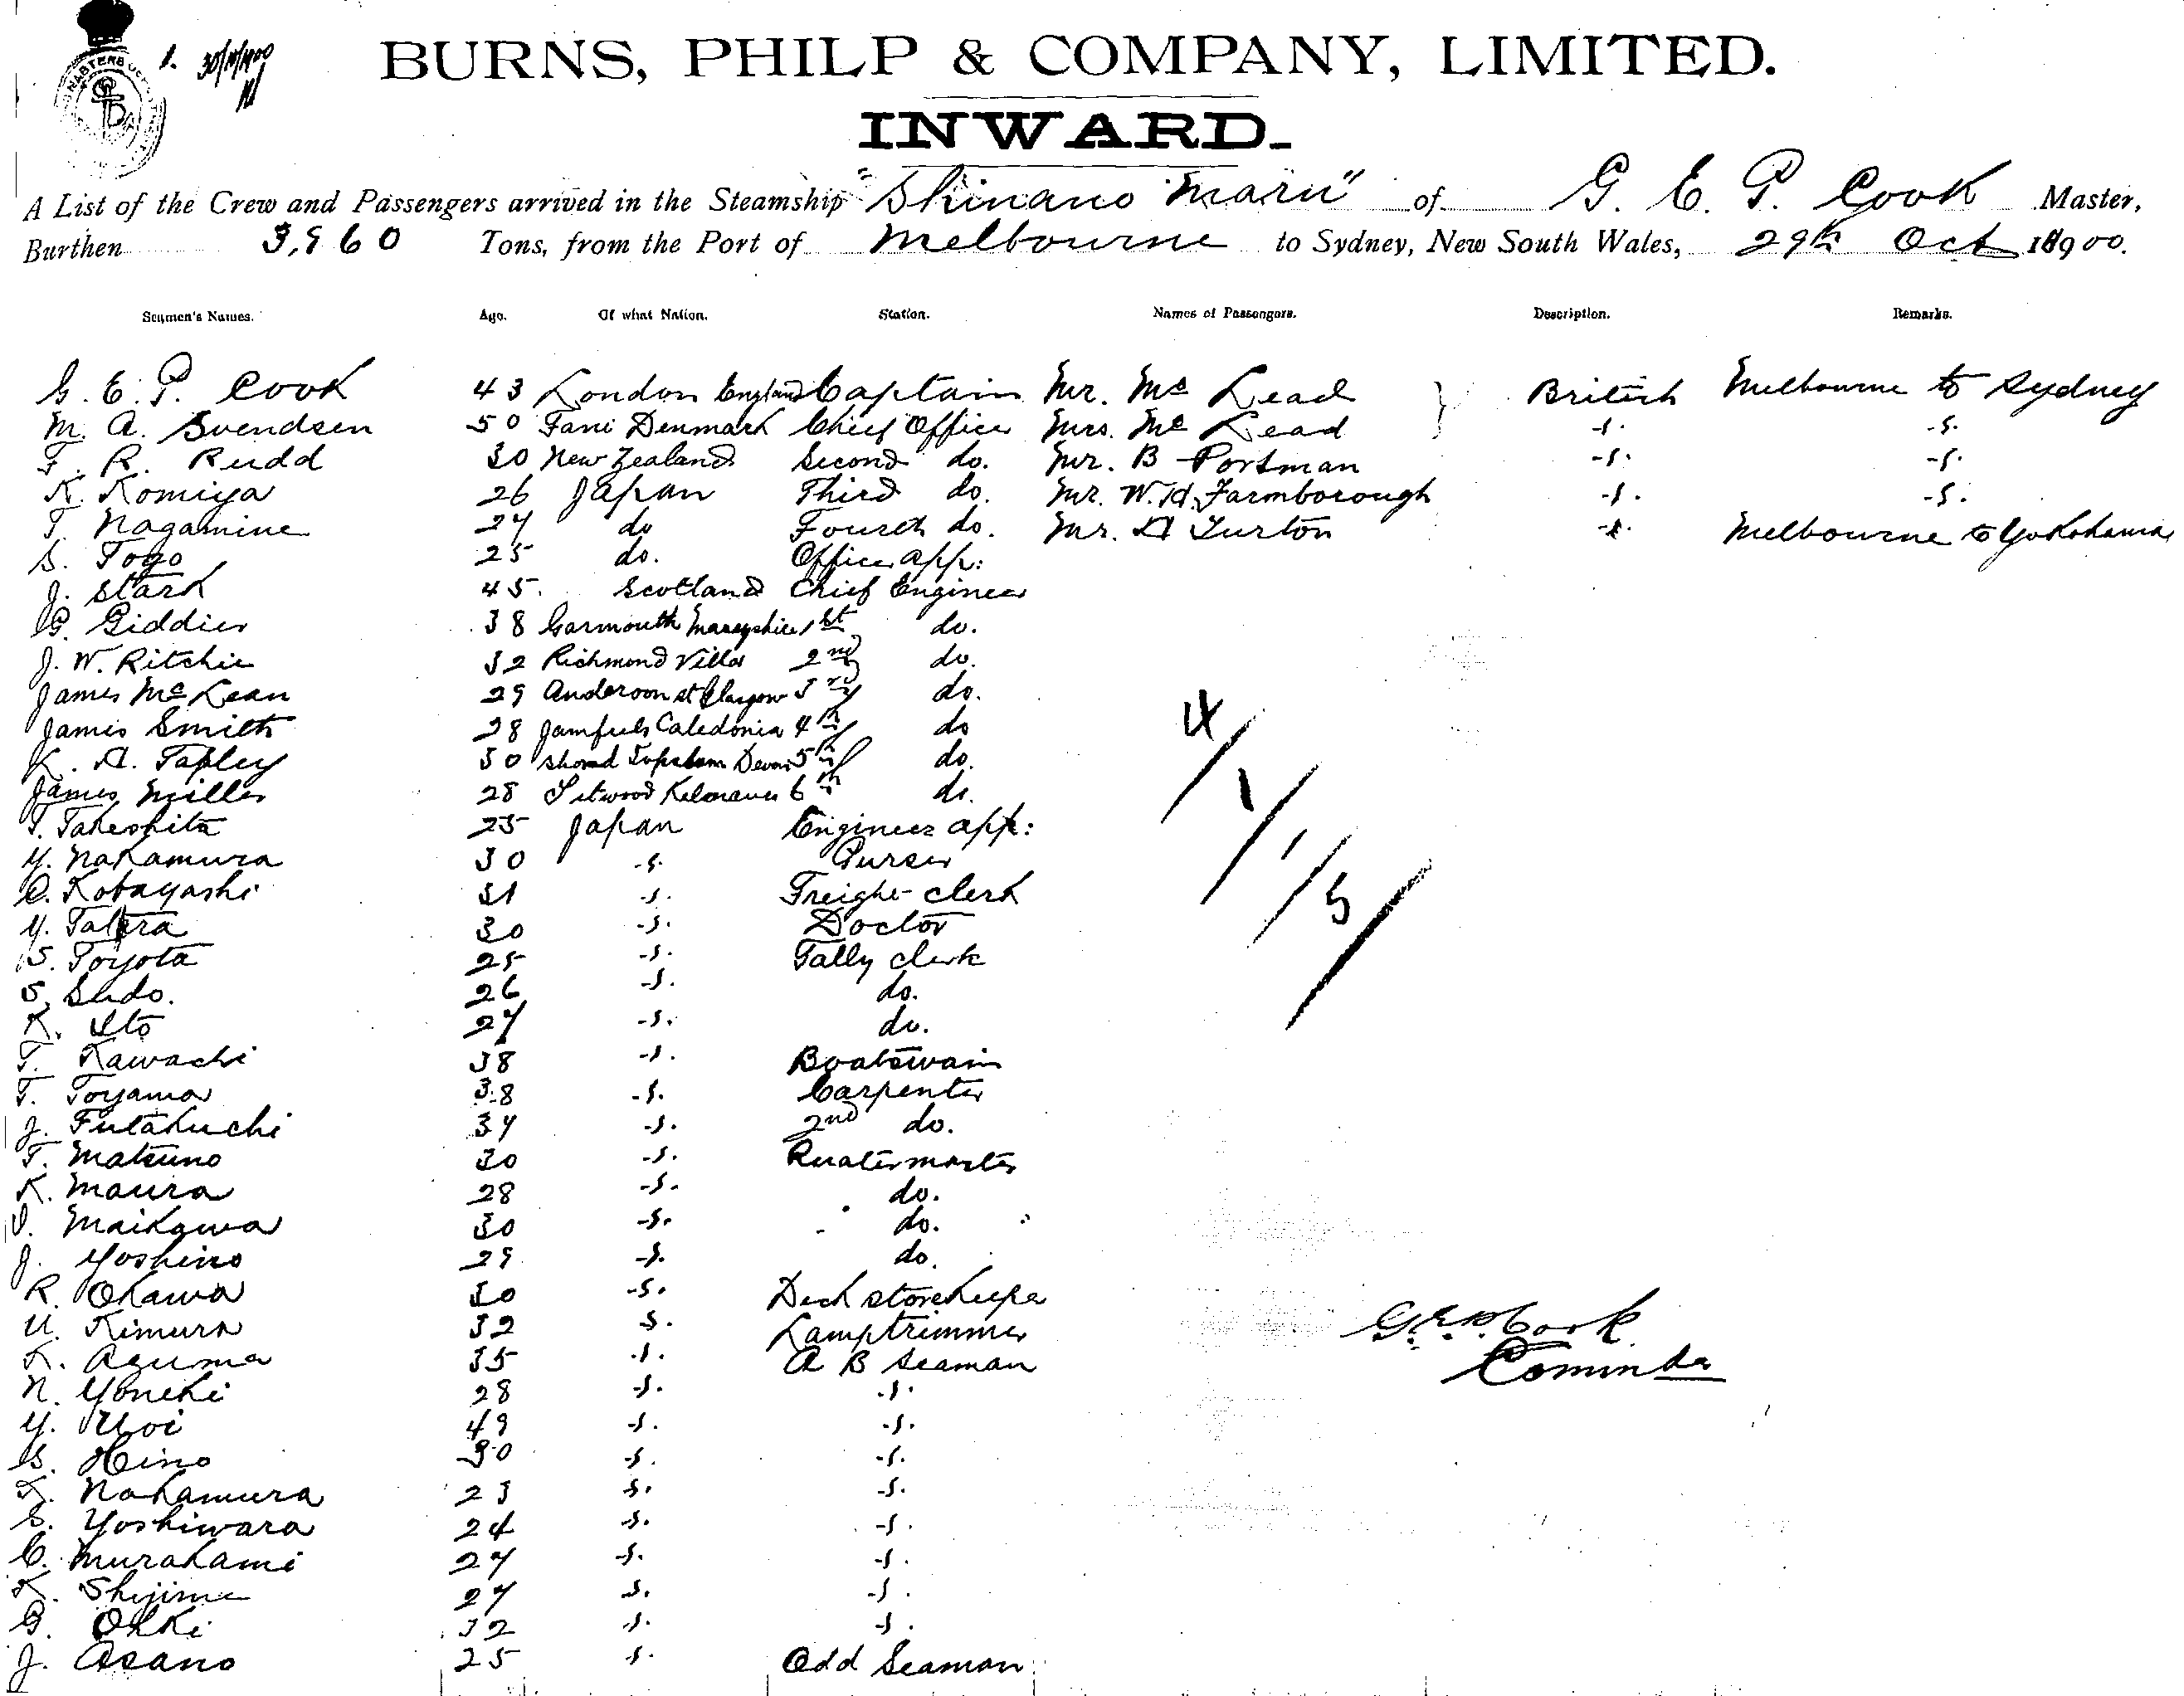 1. 30/10/1900
BURNS, PHILP & COMPANY, LIMITED.
INWARD.
A List of the Crew and Passengers arrived in the Steamship "Shinano Maru" of G. E. P. Cook Master,
Burthen 3,960 Tons, from the Port of Melbourne to Sydney, New South Wales, 29th Oct 18900.
Seamen's Names. Age. Of what Nation. Station. Names of Passengers. Description. Remarks.
G. E. P. Cook 43 London England Captain Mr. Mc Lead } British Melbourne to Sydney
M. A. Svendsen 50 Fani Denmark Chief Officer Mrs. Mc Lead -s- -s-
F. R. Rudd 30 New Zealand Second do. Mr. B Portman -s- -s-
K. Komiya 26 Japan Third do. Mr. W. H. Farmborough -s- -s-
T. Nagamine 27 do Fourth do. Mr. A Turton -s- Melbourne to Yokohama
S. Togo 25 do. Officer app:
J. Stark 45. Scotland Chief Engineer
G. Giddier 38 Garmouth 1st do.
J. W. Ritchie 32 Richmond Villa 2nd do.
James Mc Lean 29 Anderson st Glasgow 3rd do.
James Smith 28 Caledonia 4th do
K. A. Tapley 30 Topsham Devon 5th do.
James Miller 28 6th do.
T. Takeshita 25 Japan Engineer app:
Y. Nakamura 30 -s- Purser
C. Kobayashi 31 -s- Freight clerk
Y. 30 -s- Doctor
S. Toyota 25 -s- Tally clerk
S. Sudo. 26 -s- do.
K. Ito 27 -s- do.
T. Kawachi 38 -s- Boatswain
T. Toyama 38 -s- Carpenter
J. Futakuchi 34 -s- 2nd do.
T. Matsuno 30 -s- Quatermaster
K. Maura 28 -s- do.
Maikawa 30 -s- do.
J. Yoshino 29 -s- do.
R. Okawa 30 -s- Deck storekeeper
U. Kimura 32 -s- Lamptrimmer
K. Azuma 35 -s- A B Seaman
N. Yoneki 28 -s- -s-
Y. Uoi 49 -s- -s-
S. Hino 30 -s- -s-
K. Nakamura 23 -s- -s-
S. Yoshiwara 24 -s- -s-
C. Murakami 27 -s- -s-
K. Shijima 27 -s- -s-
G. Ohki 32 -s- -s-
J. Asano 25 -s- Odd Seaman
4/1/1/5/
G. E. P. Cook
Commder